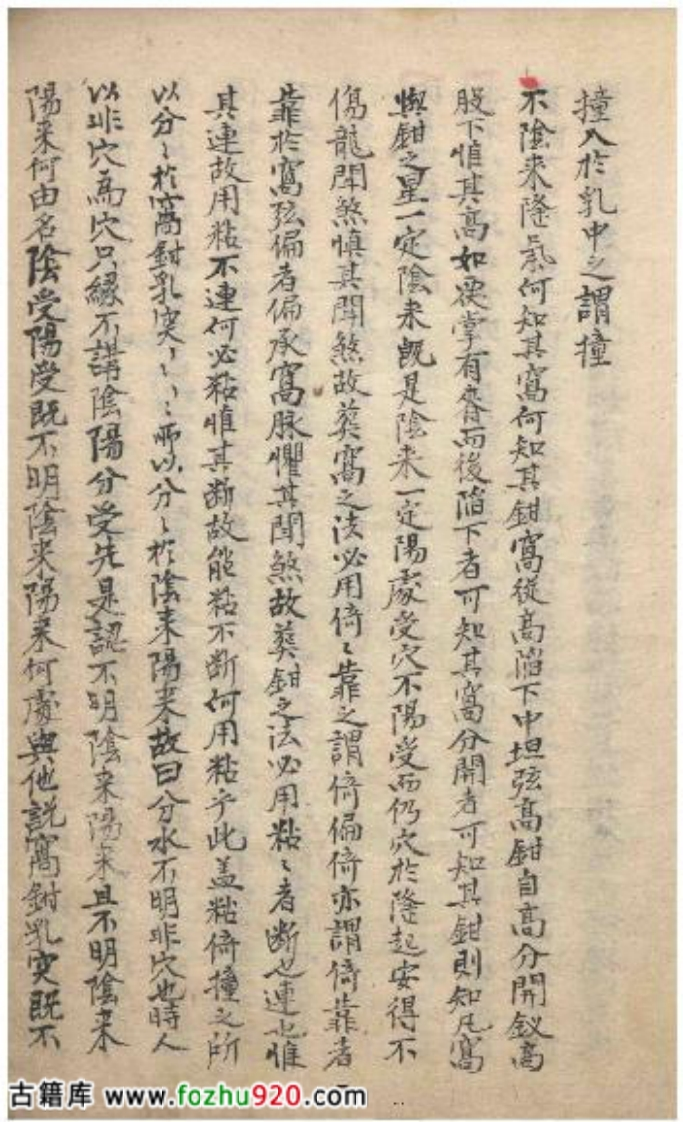 撞入於乳中之謂撞
不陰来隆氣何知其窩何知其鉗窩從高陷下中坦弦高鉗自高分開釵高
股下惟其高如仄掌有脊而後陷下者可知其窩分開者可知其鉗則知凡窩
與鉗之星一定陰来既是陰来一定陽處受穴不陽受而仍穴於隆起安得不
傷龍聞煞慎其聞煞故葬窩之法必用倚〻靠之謂倚偏倚亦謂倚靠者
靠於窩弦偏者偏承窩脉懼其聞煞故葬鉗之法必用粘〻者断也連也惟
其連故用粘不連何必粘惟其断故能粘不断何用粘乎此盖粘倚撞之所
以分〻於窩鉗乳突〻〻〻〻所以分〻於陰来陽来故曰分水不明非穴也時人
以非穴為穴只緣不講陰陽分受先是認不明陰来陽来且不明陰来
陽来何由名陰受陽受既不明陰来陽来何處與他説窩鉗乳突既不
古籍库 www.fozhu920.com